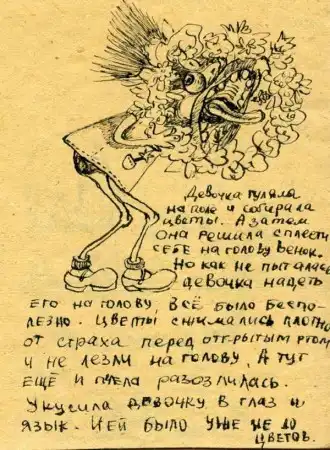 Девочка гуляла
на поле и собирала
цветы. А затем
она решила сплести
себе на голову венок.
Но как не пыталась
девочка надеть
его на голову, всё было беспо-
лезно. Цветы сжимались плотно
от страха перед открытым ртом
и не лезли на голову. А тут
ещё и пчела разозлилась.
Укусила девочку в глаз и
язык. И ей было уже не до
цветов.